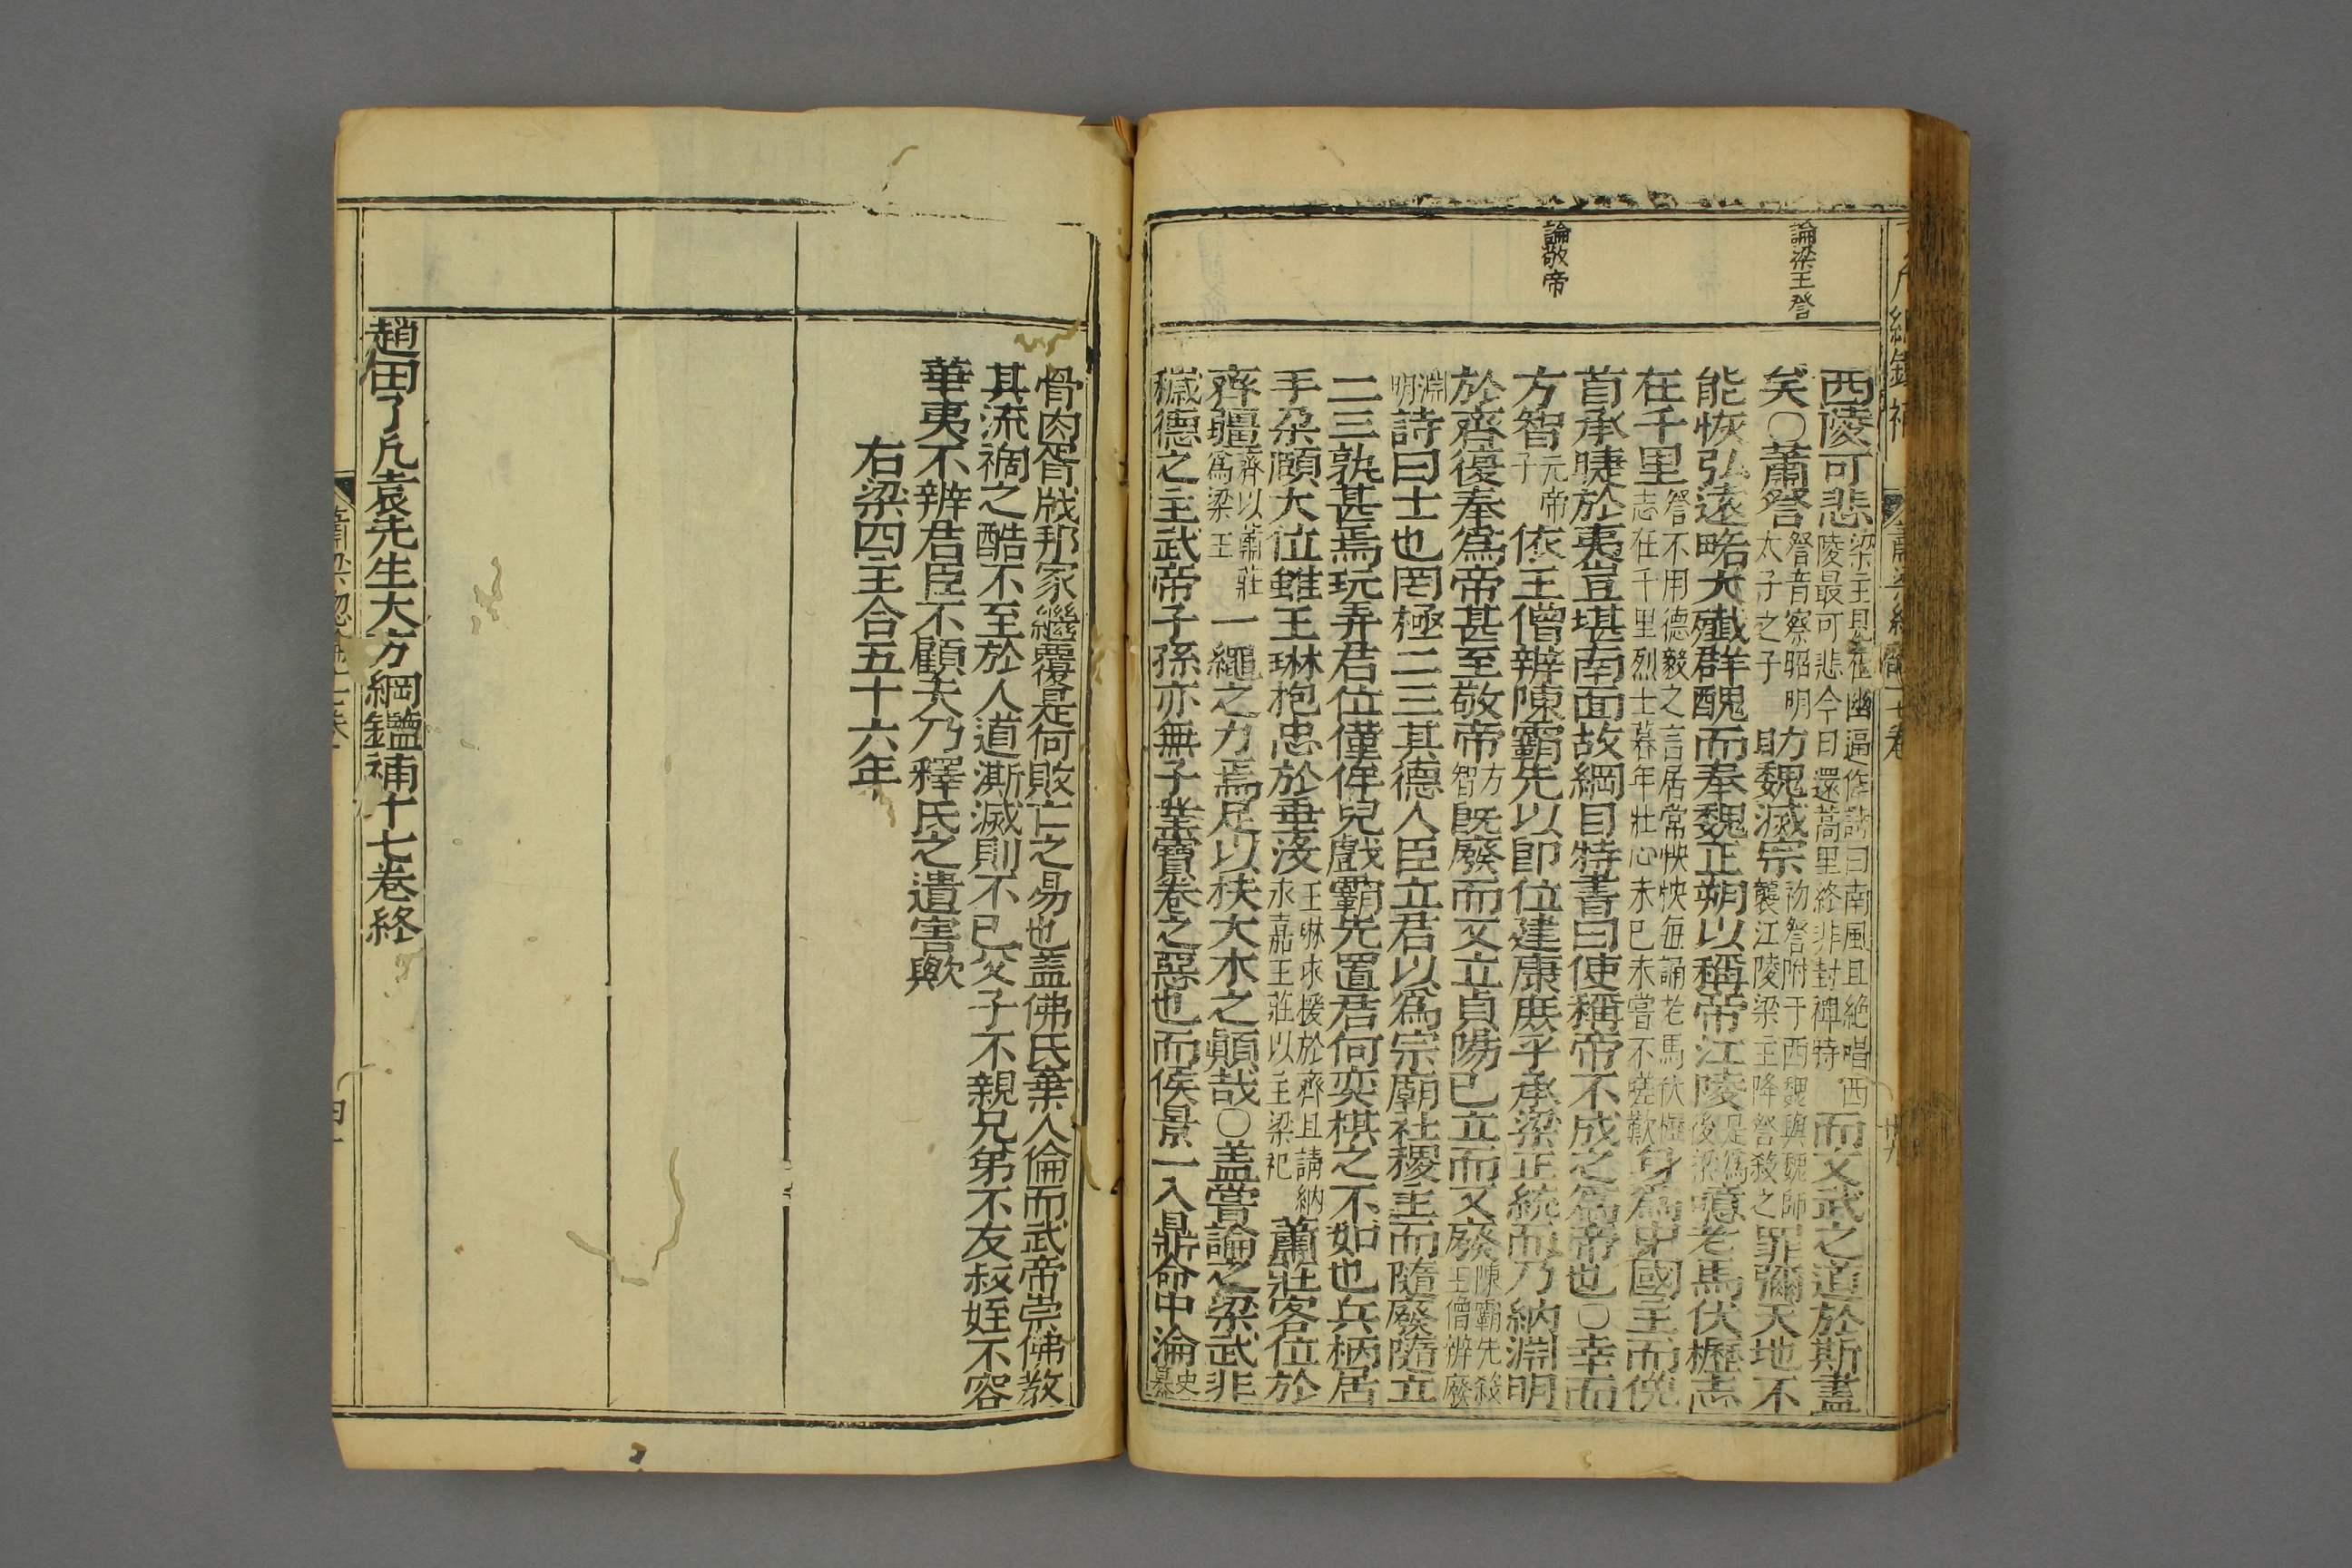 論梁王詧
論敬帝
西陵可悲梁主見在幽逼作詩曰南風且絶唱西陵最可悲今日還蒿里終非封禪特而文武之道於斯盡
矣○蕭詧詧音察昭明太子之子助魏滅宗初詧附于西魏與魏師襲江陵梁主降詧殺之罪彌天地不
能恢弘遠略大殲群醜而奉魏正朔以稱帝江陵是爲後梁噫老馬伏櫪志
在千里詧不用德毅之言居常怏怏每誦老馬伏櫪志在千里烈士暮年壯心未已未嘗不嗟歎身爲中國主而俛
首承睫於夷豈堪南面故綱目特書曰使稱帝不成之爲帝也○幸而
方智元帝子依王僧辨陳霸先以卽位建康庶乎承梁正統而乃納淵明
於齊復奉爲帝甚至敬帝方智旣廢而又立貞陽已立而又廢陳霸先殺王僧辨廢
淵明詩曰士也罔極二三其德人臣立君以爲宗廟社稷主而隨廢隨立
二三孰甚焉玩弄君位僅侔兒戲霸先置君何奕棋之不如也兵柄居
手朶頤大位雖王琳抱忠於垂沒王琳求援於齊且請納永嘉王莊以主梁祀蕭莊客位於
齊疆齊以蕭莊爲梁王一繩之力焉足以扶大木之顚哉○盖嘗論之梁武非
穢德之主武帝子孫亦無子業寶卷之惡也而侯景一入鼎命中淪史纂
骨肉胥戕邦家繼覆是何敗亡之易也盖佛氏棄人倫而武帝崇佛敎
其流禍之酷不至於人道澌滅則不已父子不親兄弟不友叔姪不容
華夷不辨君臣不顧夫乃釋氏之遺害歟
右梁四主合五十六年
趙田了凡袁先生大方綱鑑補十七卷終